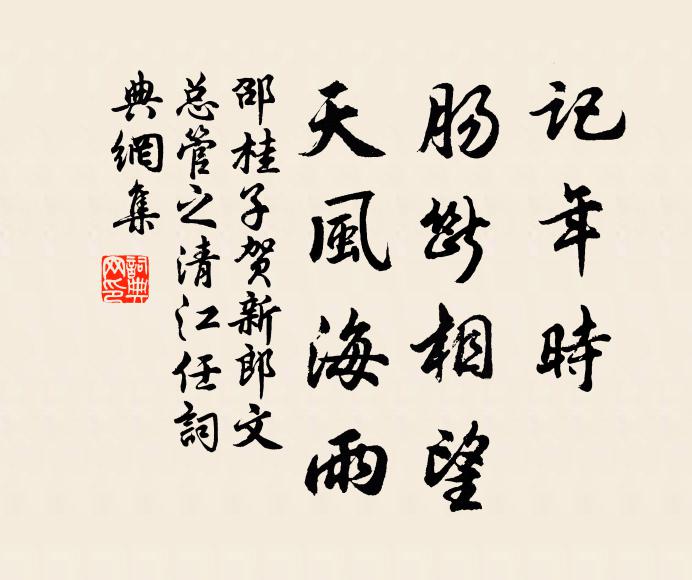 記年時
腸斷相望
天風海雨
邵桂子賀新郎文
总管之清江任詞
典網集
詞典网印